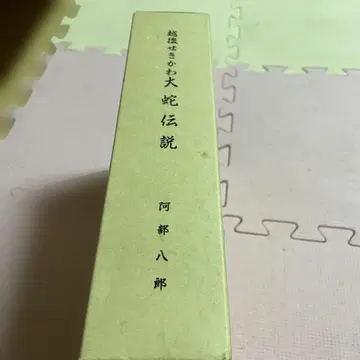 越後せきかわ大蛇伝説
阿部八郎